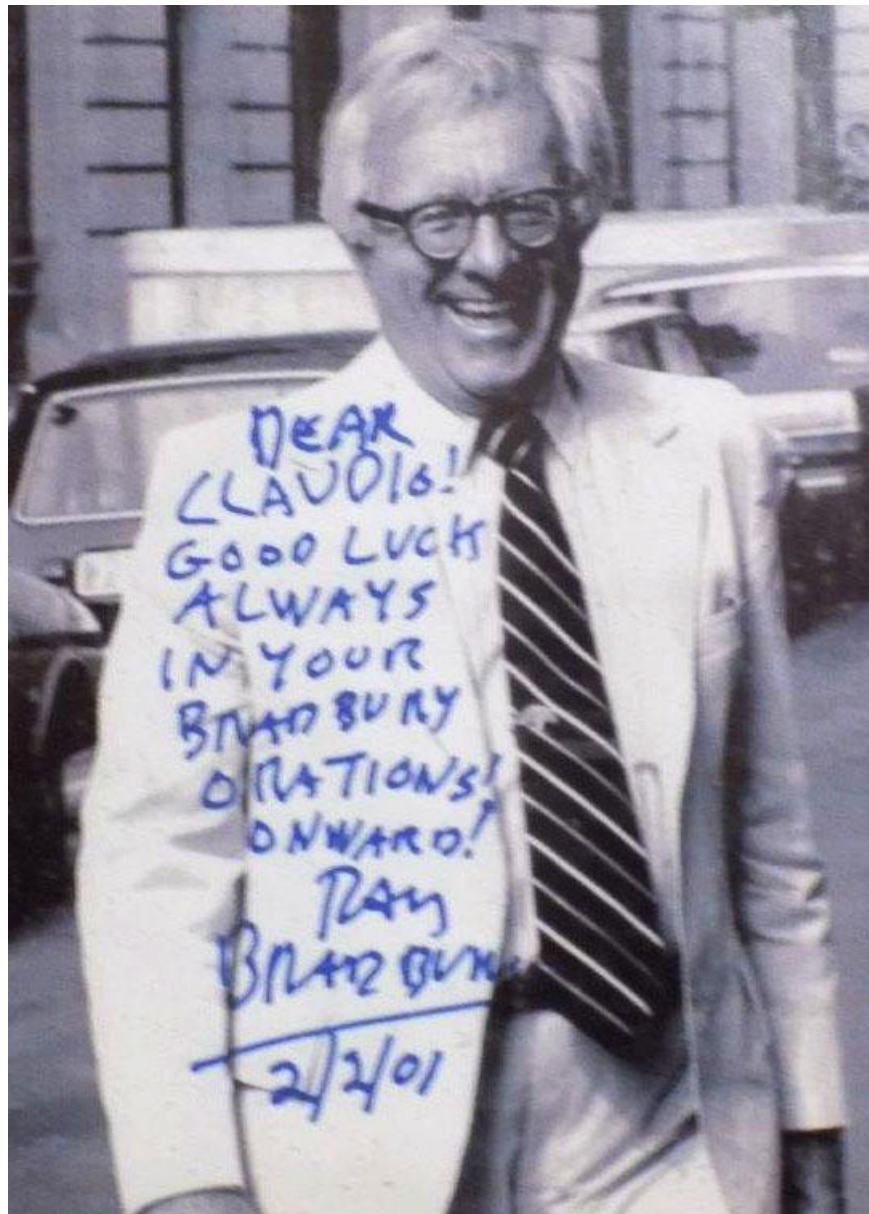 DEAR
CLAUDIO!
GOOD LUCK
ALWAYS
IN YOUR
BRADBURY
ORATIONS!
ONWARD!
RAY
BRADBURY
2/2/01